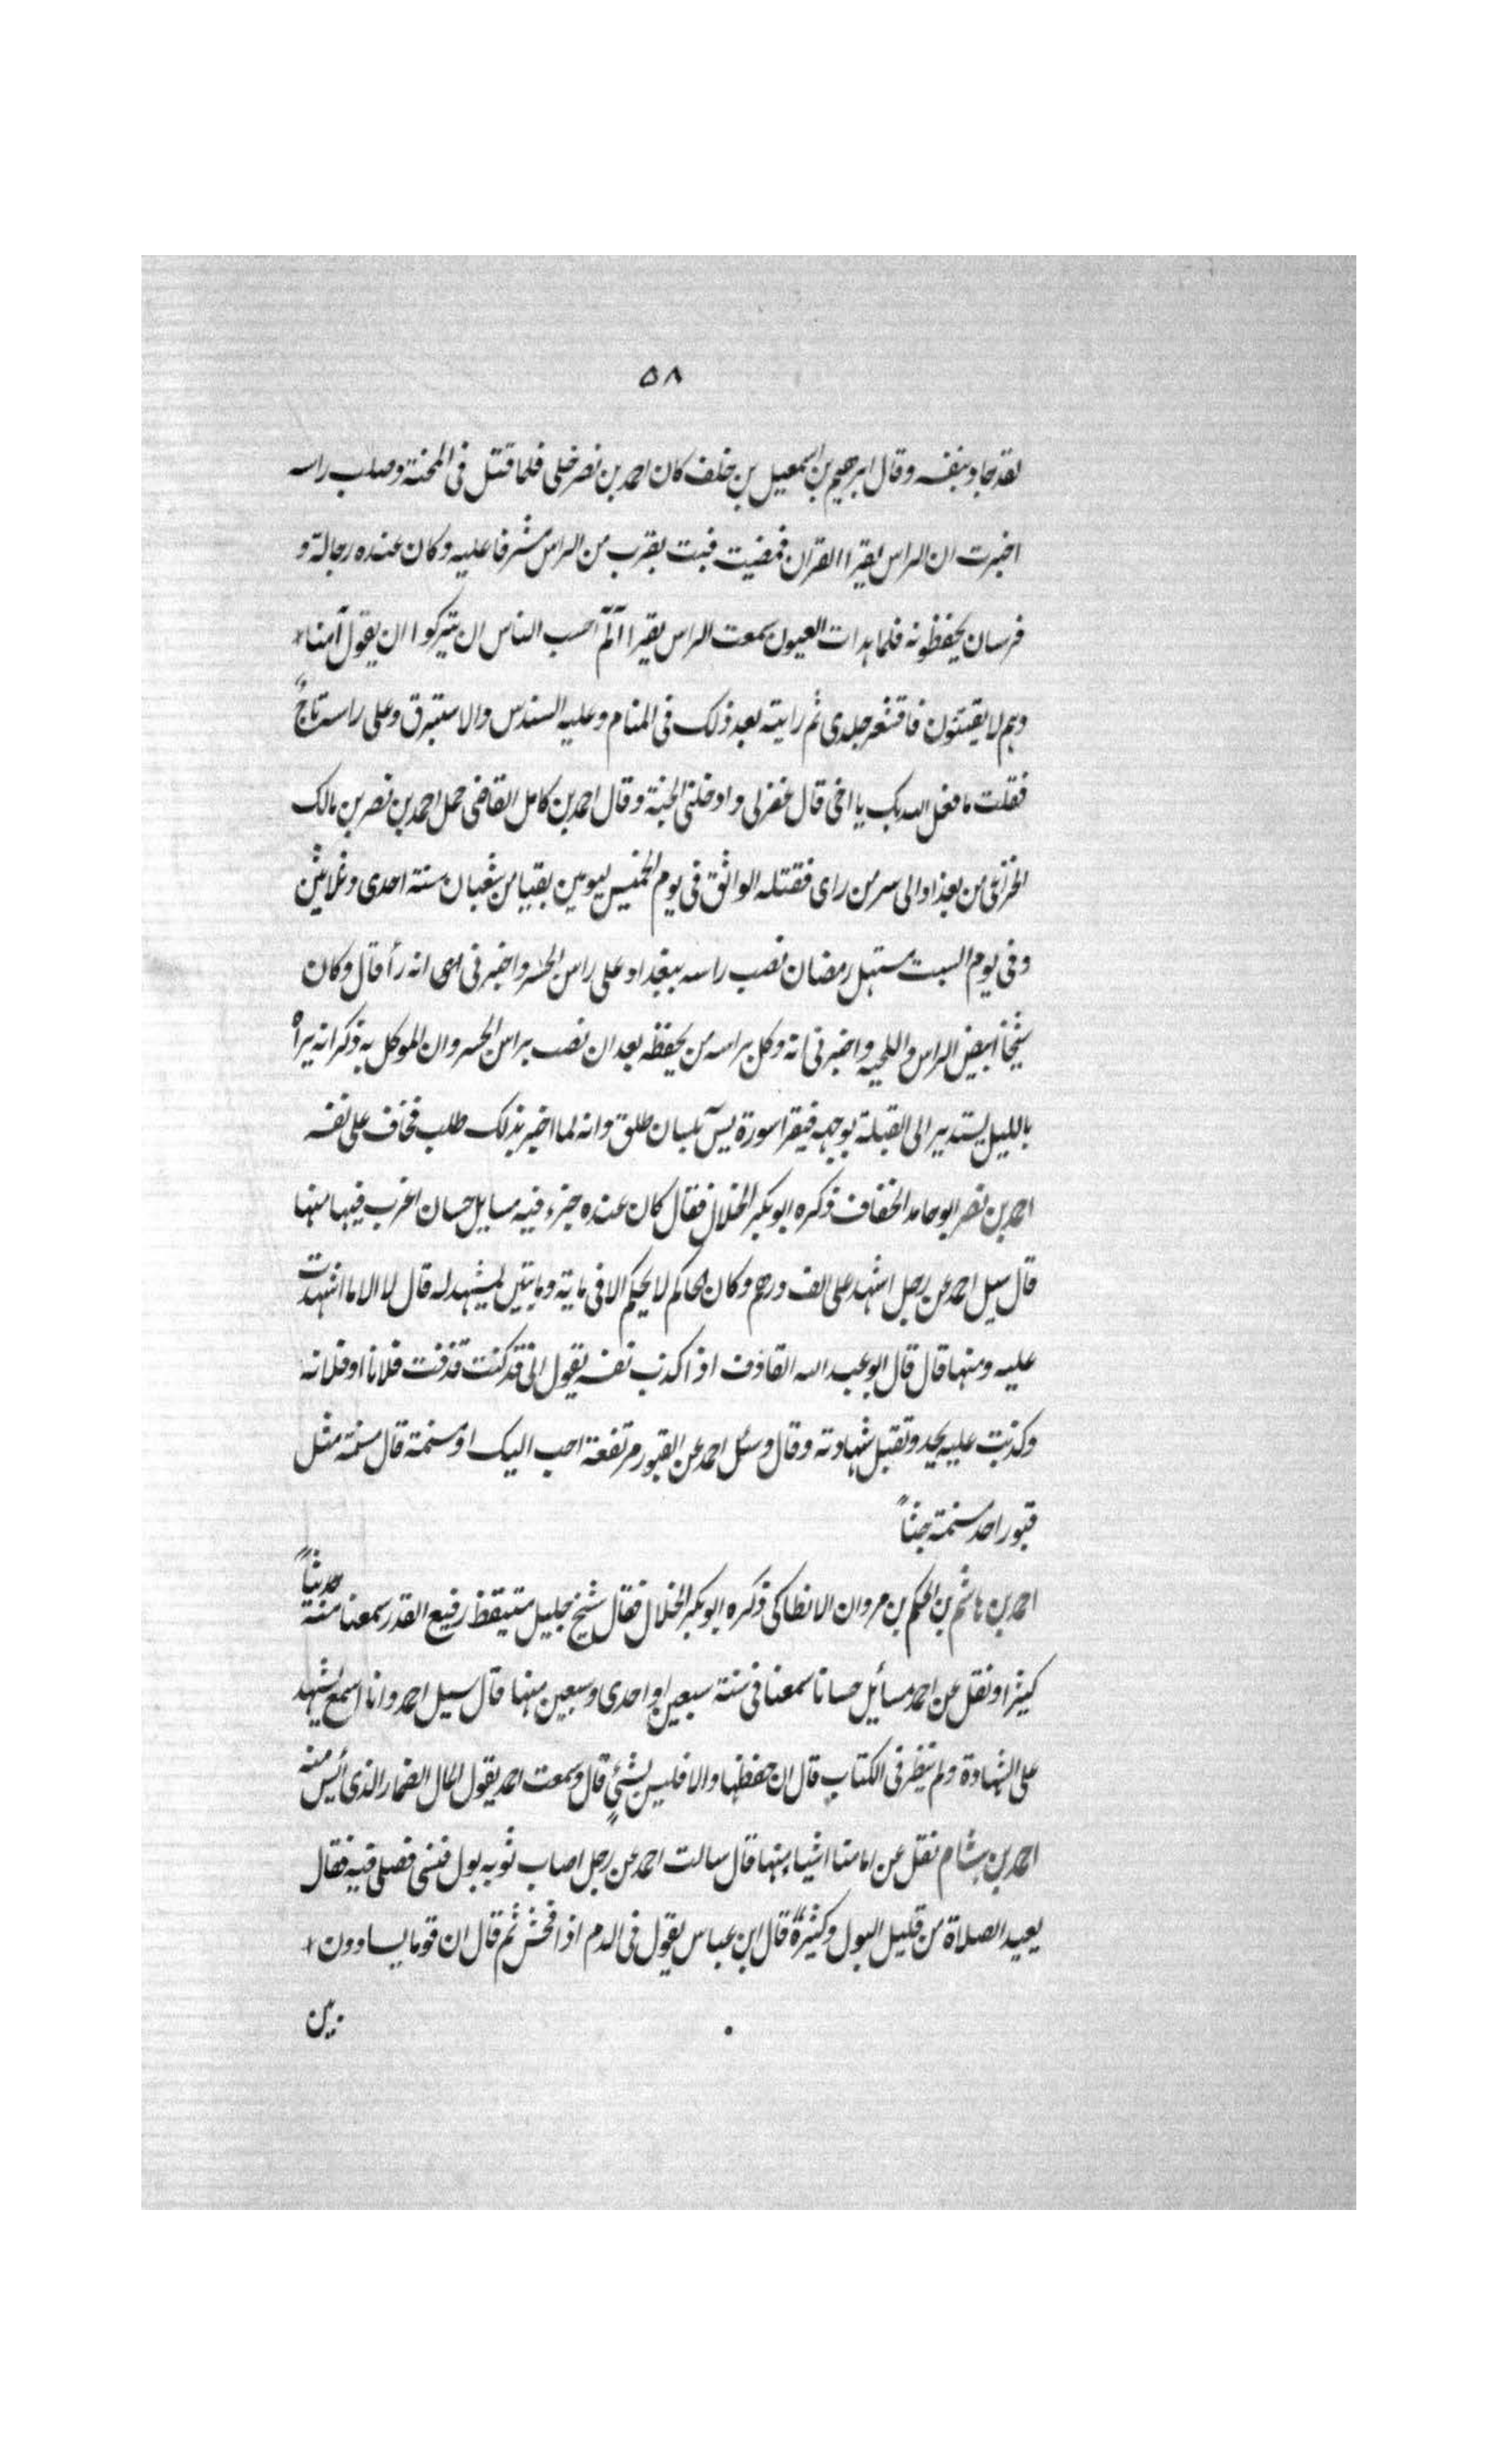 ٥٨
لقد جاد بنفسه وقال ابرهيم بن اسمعيل بن خلف كان احمد بن نصر خلى فلما قتل فى المحنة وصلب راسه
اخبرت ان الراس يقرا القران فمضيت فبت بقرب من الراس مشرفا عليه وكان عنده رجالة و
فرسان يحفظونه فلما هدات العيون سمعت الراس يقرا الٓمٓ احسب الناس ان يتركوا ان يقول آمنا
وهم لا يفتنون فاقشعر جلدى ثم رايته بعد ذلك فى المنام وعليه السندس والاستبرق وعلى راسه تاجٌ
فقلت ما فعل الله بك يا اخى قال غفر لى وادخلنى الجنة وقال احمد بن كامل القاضى حمل احمد بن نصر بن مالك
الخزاعى من بغداد الى سر من راى فقتله الواثق فى يوم الخميس ليومين بقيا من شعبان سنة احدى وثلاثين
وفى يوم السبت مستهل رمضان نصب راسه ببغداد على راس الجسر واخبرنى ابى انه رأ قال وكان
شيخا ابيض الراس واللحيه واخبرنى انه وكل براسه من يحفظه بعد ان نصب براس الجسر وان الموكل به ذكر انه يراه
بالليل يستدير الى القبلة بوجهه فيقرا سورة يسٓ بلسان طلق وانه لما اخبر بذلك طلب فخاف على نفسه
احمد بن نصر ابو حامد الخفاف ذكره ابو بكر الخلال فقال كان عنده جزء فيه مسايل حسان اغرب فيها منها
قال سيل احمد عن رجل اشهد على الف درهم وكان الحاكم لا يحكم الا فى ماية ومايتين يشهد له قال لا الا ما اشهدت
عليه ومنها قال قال ابو عبد الله القاذف اذا اكذب نفسه يقول انى قد كنت قذفت فلانا او فلانه
وكذبت عليه يحد وتقبل شهادته وقال وسئل احمد عن القبور مرتفعة احب اليك او مسنمة قال مسنمة مثل
قبور احد مسنمة جثاً
احمد بن هاشم بن الحكم بن مروان الانطاكى ذكره ابو بكر الخلال فقال شيخ جليل متيقظ رفيع القدر سمعنا منه حديثاً
كثيرا ونقل عن احمد مسأيل حسانا سمعنا فى سنة سبعين او احدى وسبعين منها قال سيل احمد وانا اسمع يشهد
على الشهادة ولم ينظر فى الكتاب قال ان حفظها والا فليس بشئٍ قال وسمعت احمد يقول المال الضمار الذى أيس منه
احمد بن هشام نقل عن امامنا اشيا منها قال سالت احمد عن رجل اصاب ثوبه بول فنسى فصلى فيه فقال
يعيد الصلاة من قليل البول وكثيره قال ابن عباس يقول فى الدم اذا فحش ثم قال ان قوما يساوون
بين